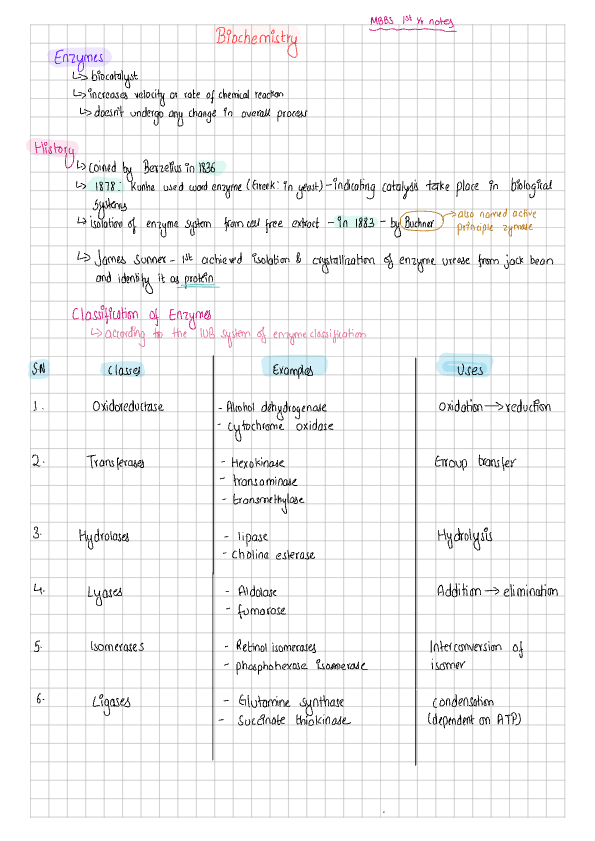 MBBS 1st Yr notes
Biochemistry
Enzymes
↳ biocatalyst
↳ increases velocity or rate of chemical reaction
↳ doesn't undergo any change in overall process
History
↳ coined by Berzelius in 1836
↳ 1878: Kunhe used word enzyme (Greek: in yeast) - indicating catalysis take place in biological
systems
↳ isolation of enzyme system from cell free extract - in 1883 - by Buchner
→ also named active
principle zymase
↳ James Sunner - 1st achieved isolation & crystallization of enzyme urease from jack bean
and identify it as protein
Classification of Enzymes
↳ according to the IUB system of enzyme classification
S.N Classes Examples Uses
1. Oxidoreductase - Alcohol dehydrogenase Oxidation → reduction
- cytochrome oxidase
2. Transferases - Hexokinase Group transfer
- transaminase
- transmethylase
3. Hydrolases - lipase Hydrolysis
- Choline esterase
4. Lyases - Aldolase Addition → elimination
- fumarase
5. Isomerases - Retinol isomerases Interconversion of
- phosphohexose isomerase isomer
6. Ligases - Glutamine synthase condensation
- Succinate thiokinase (dependent on ATP)